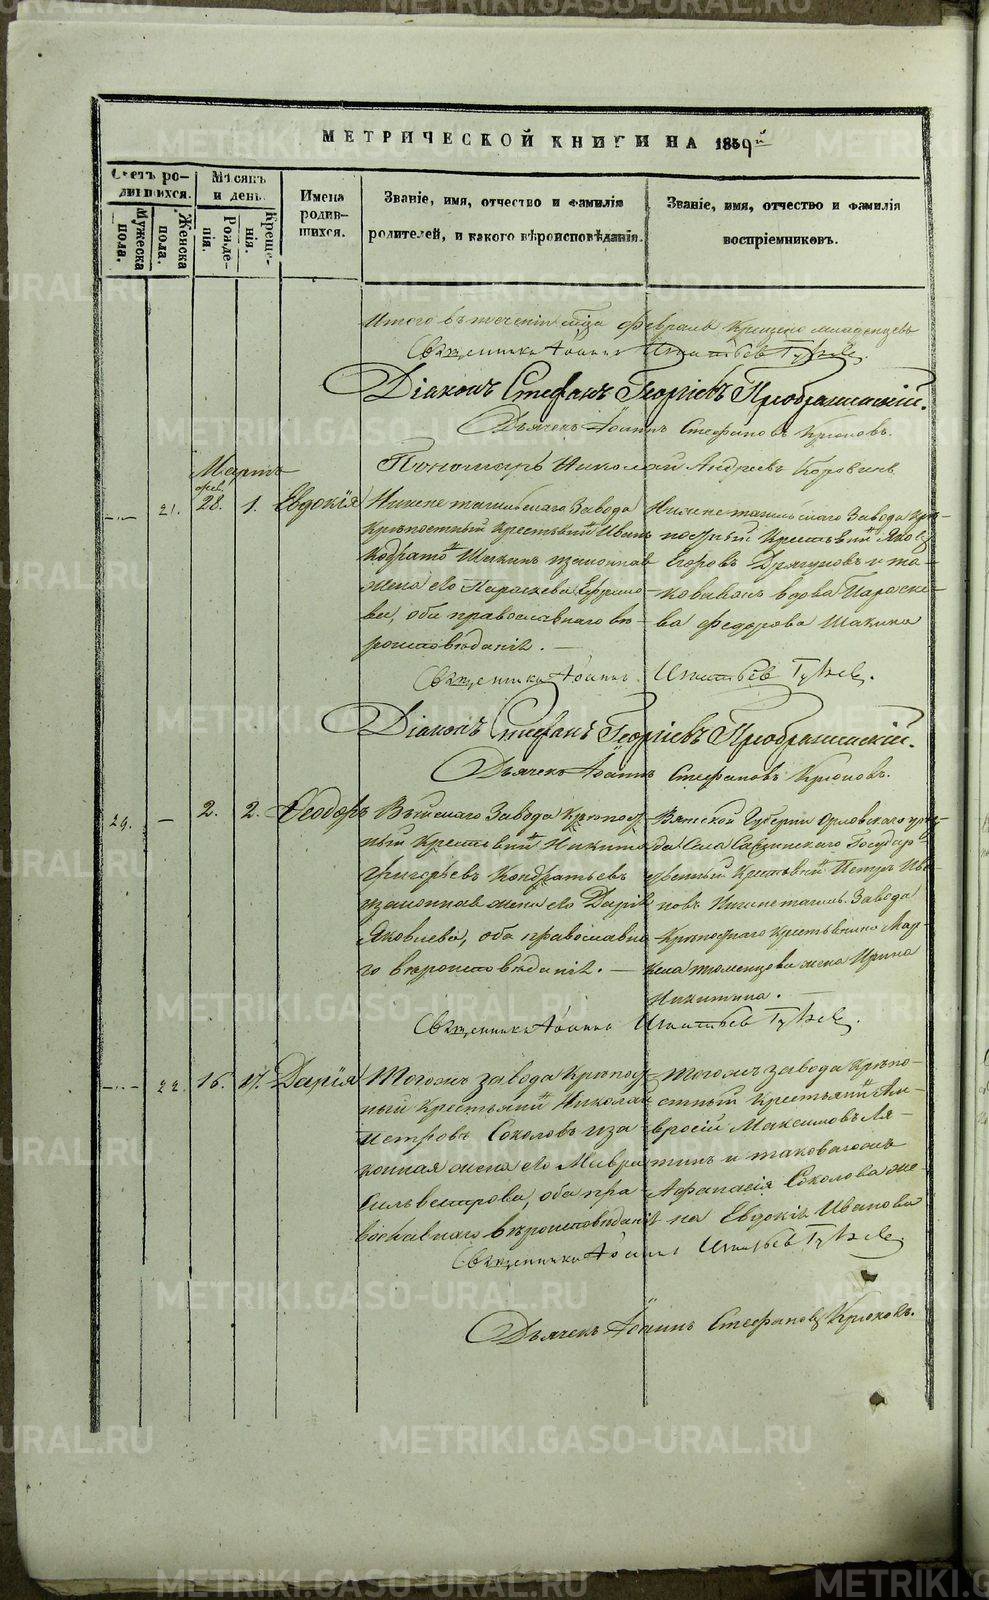 МЕТРИЧЕСКОЙ КНИГИ НА 1859й
Счетъ родившихся.
Мѣсяцъ и день.
Имена родившихся.
Званіе, имя, отчество и фамилія родителей, и какого вѣроисповѣданія.
Званіе, имя, отчество и фамилія воспріемниковъ.
Мужеска пола.
Женска пола.
Рожденія.
Крещенія.
Итого въ теченіи мца февраля крещено младенцевъ
Священникъ Іоаннъ Игнатьевъ
Діаконъ Стефанъ Георгіевъ Преображенскій.
Дьячекъ Іоаннъ Стефановъ Крюковъ.
Пономарь Николай Андреевъ Коровинъ
Мартъ
фев.
21. 28. 1. Евдокія
Нижнетагильскаго Завода
крѣпостный крестьянинъ Иванъ
законная
жена его Параскева Ефримо-
ва, оба православнаго вѣ-
роисповѣданія. —
Нижнетагильскаго Завода крѣ-
постный крестьянинъ Яковъ
Егоровъ Драгуновъ и та-
коваяжъ вдова Параске-
ва Федорова Шакина
Священникъ Іоаннъ Игнатьевъ
Діаконъ Стефанъ Георгіевъ Преображенскій.
Дьячекъ Іоаннъ Стефановъ Крюковъ.
29. — 2. 2. Ѳеодоръ
Выйскаго Завода крѣпост-
ный крестьянинъ Никита
Григорьевъ Кондратьевъ
законная жена его Дарія
Яковлева, оба православна-
го вѣроисповѣданія. —
Вятской Губерніи Орловскаго уѣз-
да Села Государ-
ственный крестьянинъ Петръ Ива-
новъ Нижнетагил. Завода
крѣпостнаго крестьянина Мар-
кела тюменцова жена Ирина
Никитина. —
Священникъ Іоаннъ Игнатьевъ
22. 16. 17. Дарія
Тогожъ завода крѣпост-
ный крестьянинъ Николай
Петровъ Соколовъ зако-
нная жена его Мавра
Сильвестрова, оба пра-
вославнаго вѣроисповѣданія
Тогожъ завода крѣпо-
стный крестьянинъ Ам-
вросій Максимовъ Ля-
пинъ и таковагожъ
Афанасія Соколова же-
на Евдокія Иванова
Священникъ Іоаннъ Игнатьевъ
Дьячекъ Іоаннъ Стефановъ Крюковъ.
METRIKI.GASO-URAL.RU